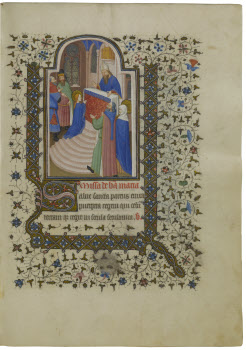 Missa de bea maria
Salue sancta parens enixa
puerpera regem qui celū
terram qȝ regit in secula seculorum. ps.